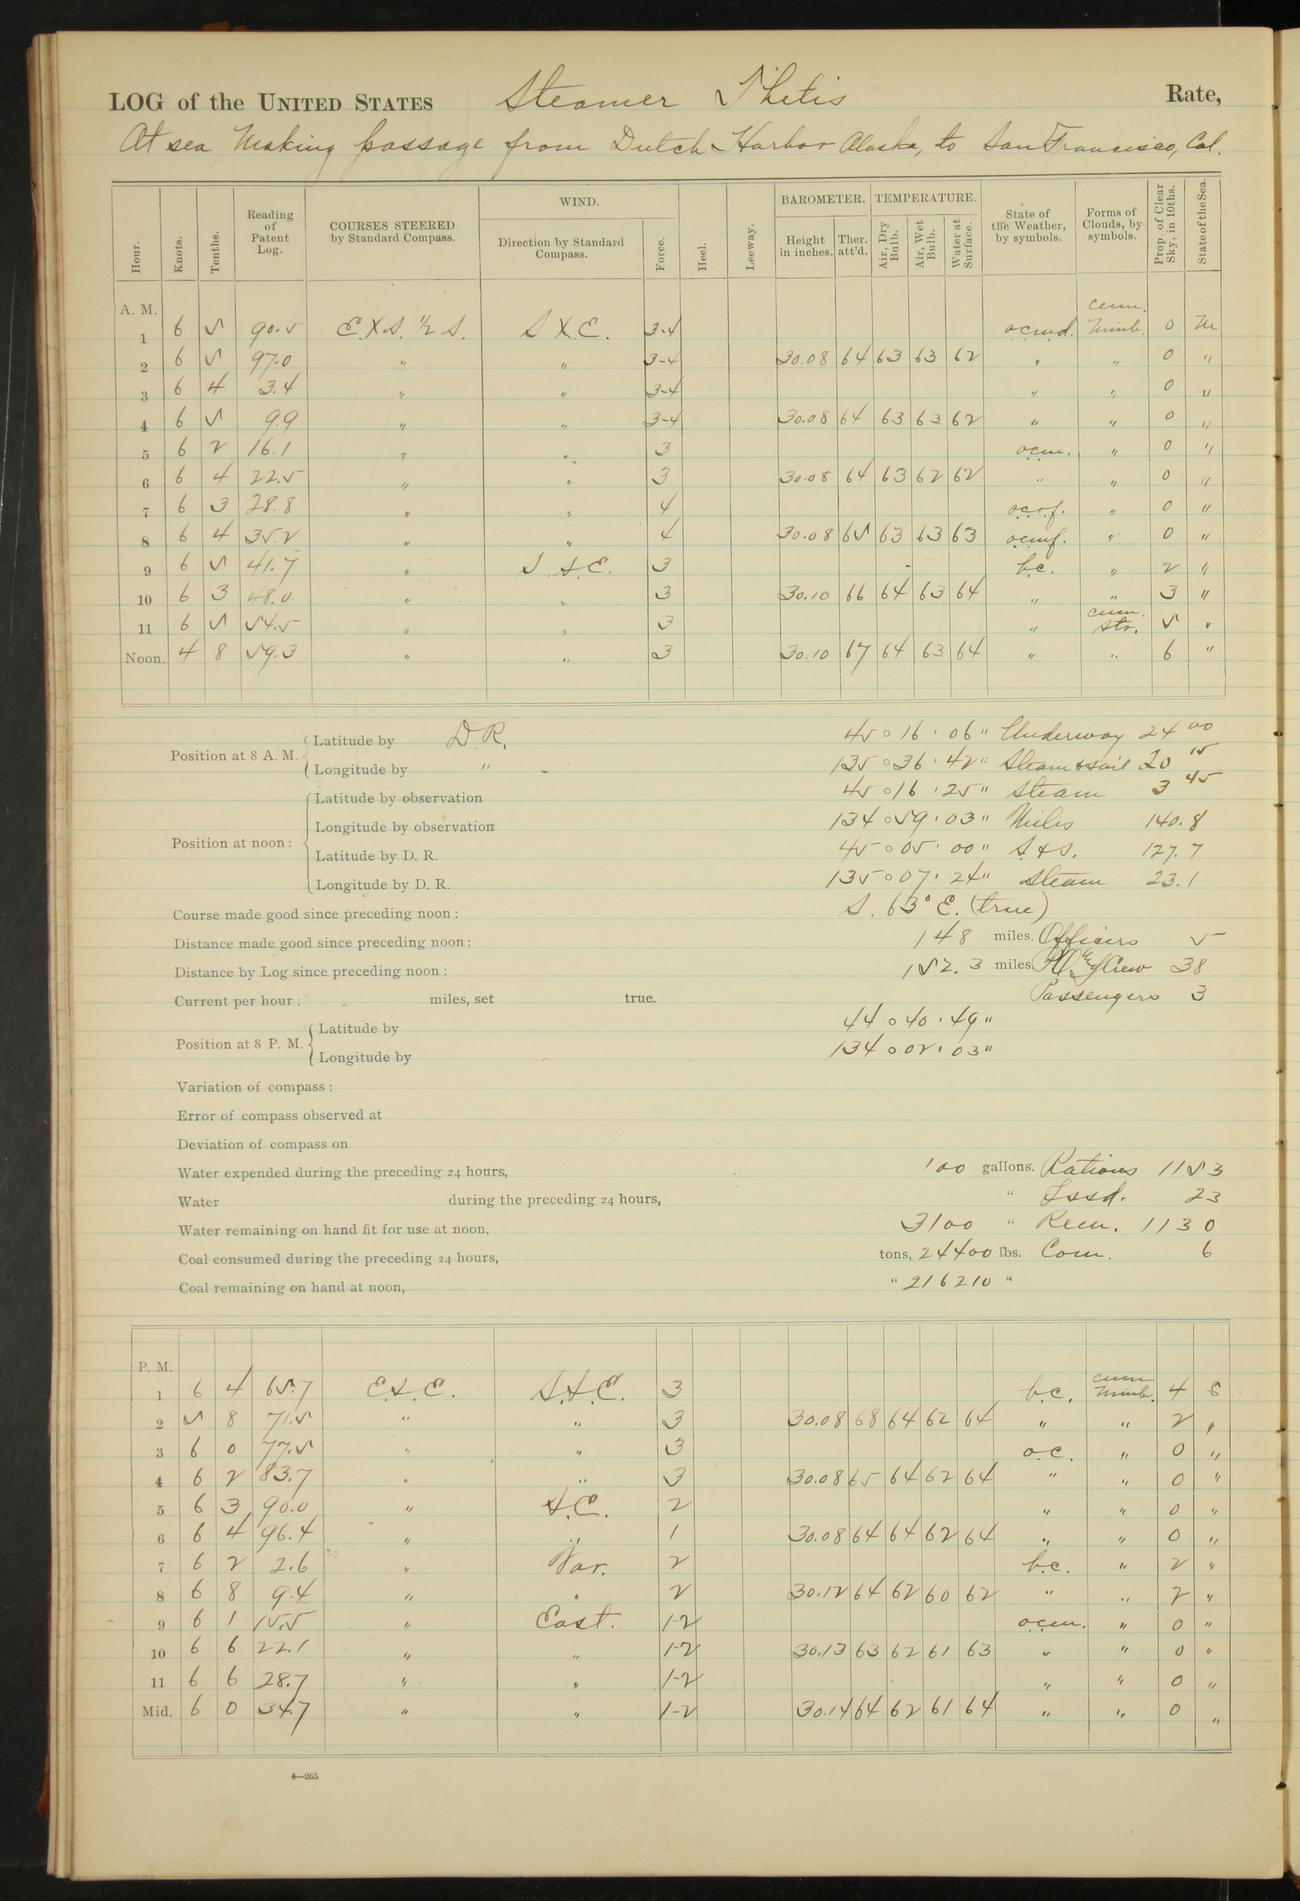 LOG of the UNITED STATES Steamer Thetis Rate,
At sea Making passage from Dutch Harbor Alaska, to San Francisco, Cal.
Hour. Knots. Tenths. Reading of Patent Log. COURSES STEERED by Standard Compass. WIND. Direction by Standard Compass. Force. Heel. Leeway. BAROMETER. Height in inches. Ther. att'd. TEMPERATURE. Air, Dry Bulb. Air, Wet Bulb. Water at Surface. State of the Weather, by symbols. Forms of Clouds, by symbols. Prop. of Clear Sky, in 10ths. State of the Sea.
A. M.
1 6 5 90.5 E X S. 1/2 S. S X E. 3-4 ocmd. cum. Nimb. 0 M
2 6 5 97.0 " " 3-4 30.08 64 63 63 62 " " 0 "
3 6 4 3.4 " " 3-4 " " 0 "
4 6 5 9.9 " " 3-4 30.08 64 63 63 62 " " 0 "
5 6 2 16.1 " " 3 ocm. " 0 "
6 6 4 22.5 " " 3 30.08 64 63 62 62 " " 0 "
7 6 3 28.8 " " 4 " 0 "
8 6 4 35.2 " " 4 30.08 65 63 63 63 ocmf. " 0 "
9 6 5 41.7 " S.S.E. 3 b.c. " 2 "
10 6 3 48.0 " " 3 30.10 66 64 63 64 " " 3 "
11 6 5 54.5 " " 3 " cum. Str. 5 "
Noon. 4 8 59.3 " " 3 30.10 67 64 63 64 " " 6 "
Position at 8 A. M. Latitude by D.R. 45 ° 16 ' 06 " Underway 24 00
Longitude by " 135 ° 36 ' 42 " Steam & sail 20 15
Position at noon : Latitude by observation 45 ° 16 ' 25 " Steam 3 45
Longitude by observation 134 ° 59 ' 03 " Miles 140.8
Latitude by D. R. 45 ° 05 ' 00 " S. & S. 127.7
Longitude by D. R. 135 ° 07 ' 24 " Steam 23.1
Course made good since preceding noon : S. 63° E. (true)
Distance made good since preceding noon : 148 miles. Officers 5
Distance by Log since preceding noon : 152.3 miles. Crew 38
Current per hour : miles, set true. Passengers 3
Position at 8 P. M. Latitude by 44 ° 40 ' 49 "
Longitude by 134 ° 02 ' 03 "
Variation of compass :
Error of compass observed at
Deviation of compass on
Water expended during the preceding 24 hours, 100 gallons. Rations 1153
Water during the preceding 24 hours, " Issd. 23
Water remaining on hand fit for use at noon, 3100 " Rem. 1130
Coal consumed during the preceding 24 hours, tons, 24400 lbs. Com. 6
Coal remaining on hand at noon, " 216210 "
P. M.
1 6 4 65.7 E.S.E. S.S.E. 3 b.c. cum Nimb. 4 S
2 5 8 71.5 " " 3 30.08 68 64 62 64 " " 2 "
3 6 0 77.5 " " 3 o.c. " 0 "
4 6 2 83.7 " " 3 30.08 65 64 62 64 " " 0 "
5 6 3 90.0 " S.E. 2 " " 0 "
6 6 4 96.4 " " 1 30.08 64 64 62 64 " " 0 "
7 6 2 2.6 " Var. 2 b.c. " 2 "
8 6 8 9.4 " " 2 30.12 64 62 60 62 " " 2 "
9 6 1 15.5 " East. 1-2 ocm. " 0 "
10 6 6 22.1 " " 1-2 30.13 63 62 61 63 " " 0 "
11 6 6 28.7 " " 1-2 " " 0 "
Mid. 6 0 34.7 " " 1-2 30.14 64 62 61 64 " " 0 "
4—265